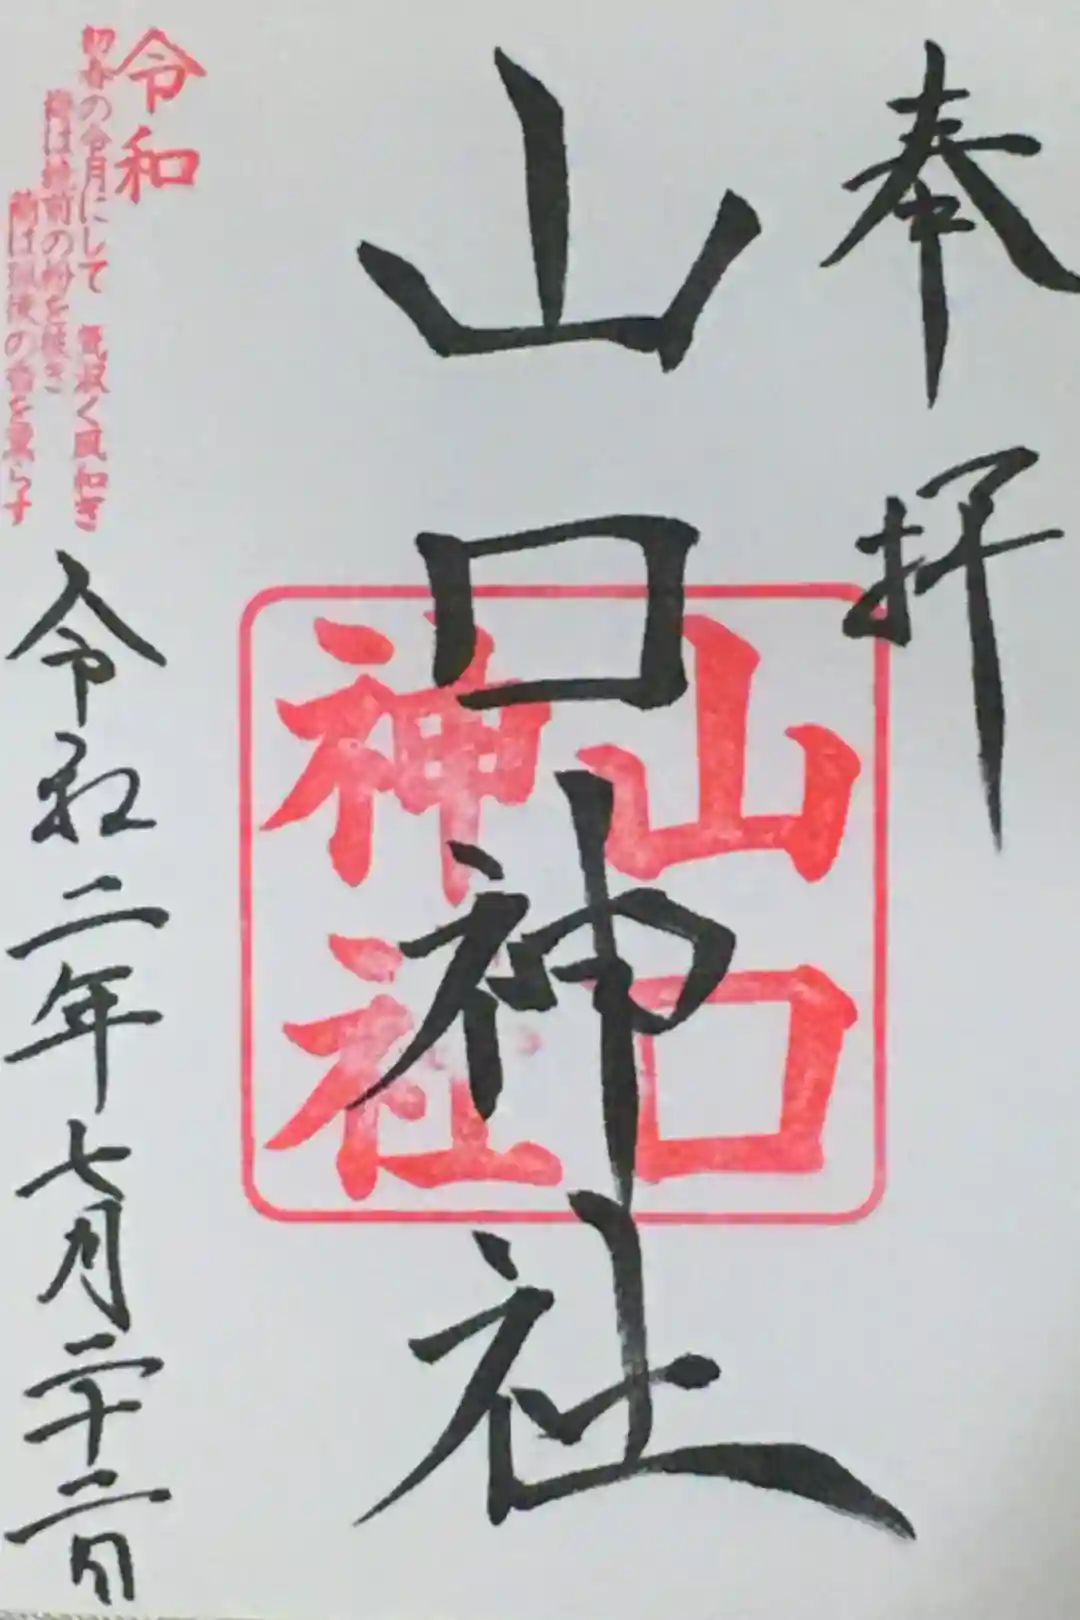 奉拝
山口神社
山口
神社
令和
初春の令月にして 気淑く風和ぎ
梅は鏡前の粉を披き
蘭は珮後の香を薫らす
令和二年七月二十二日